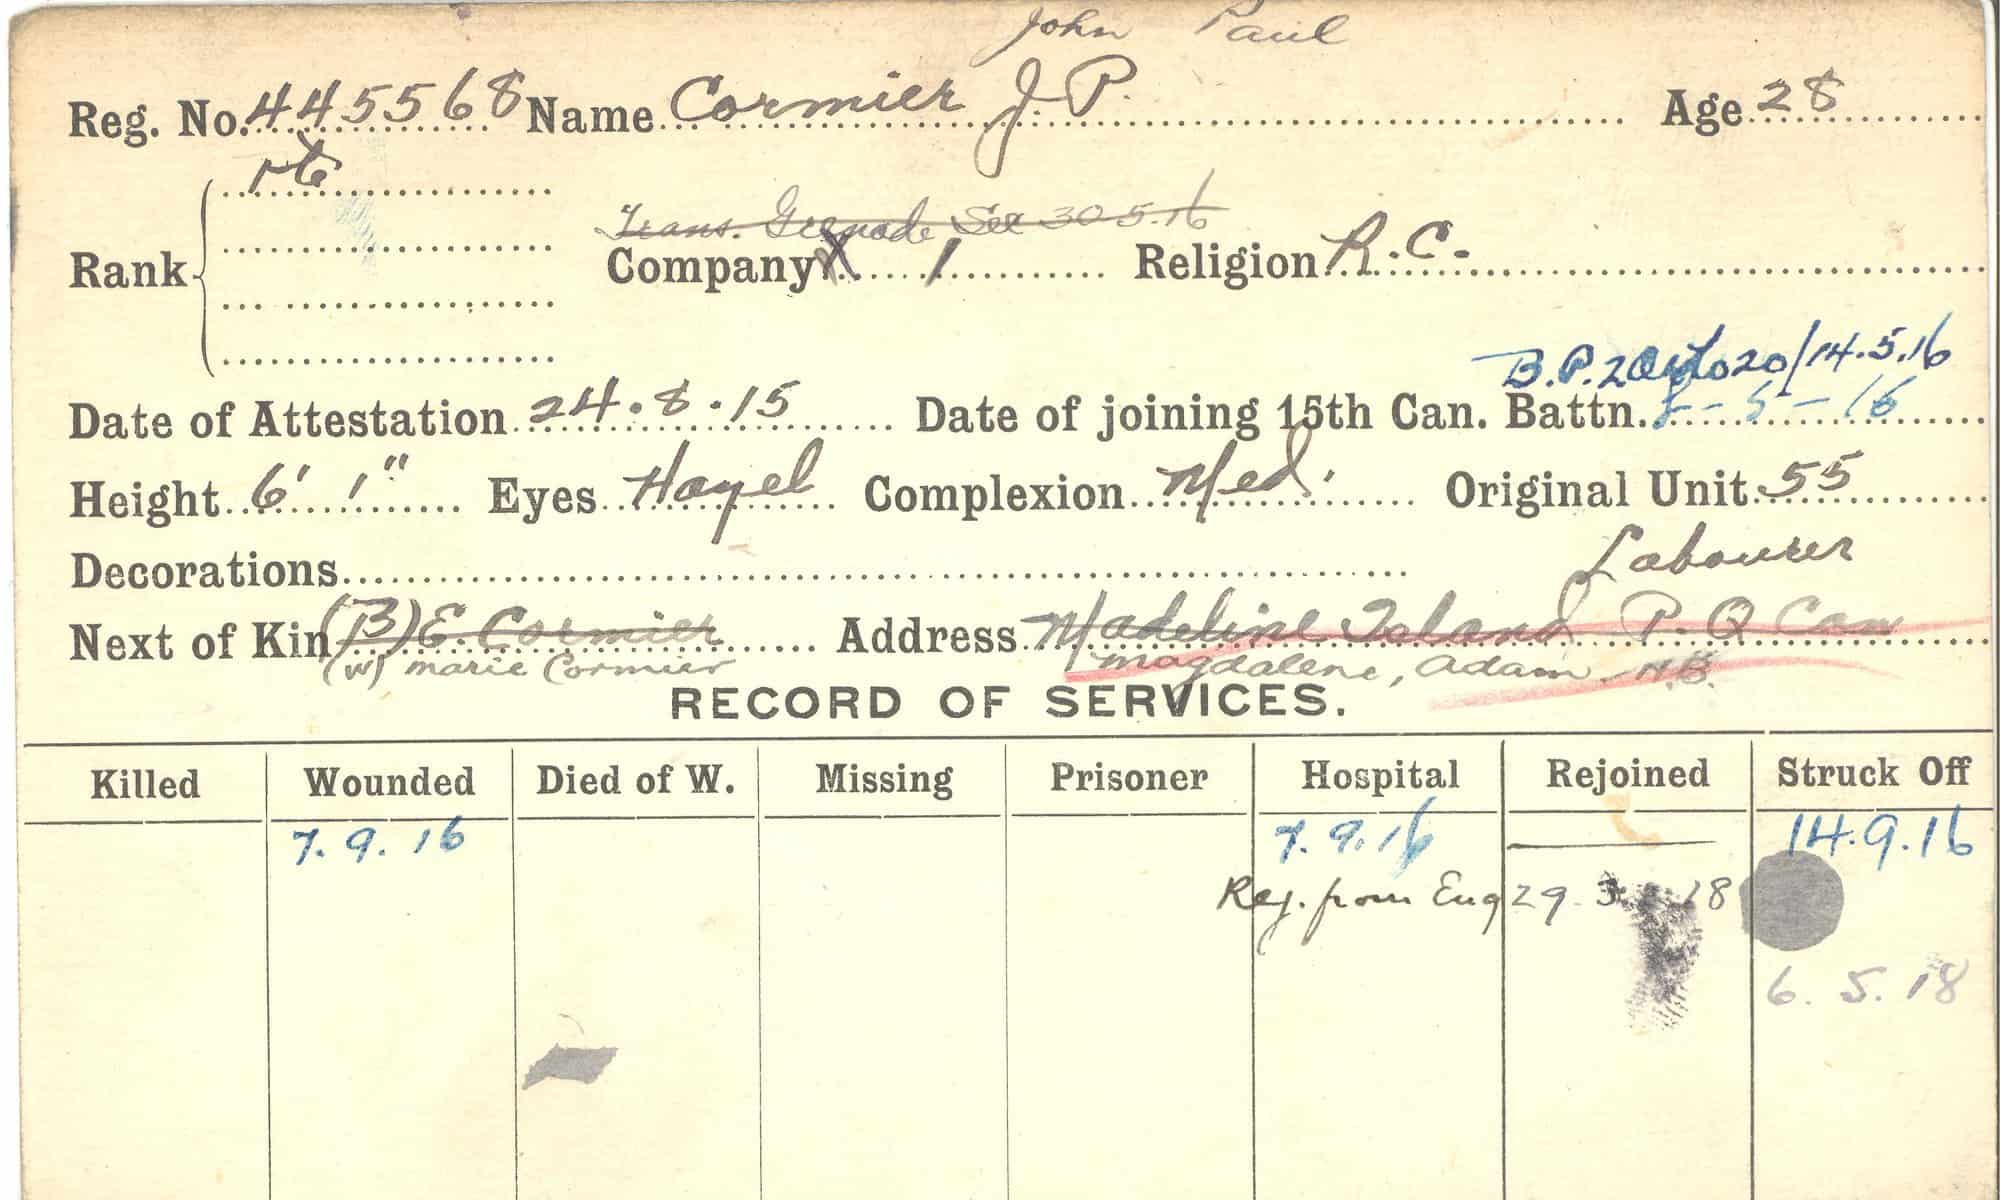 John Paul
Reg. No. 445568 Name Cormier J. P. Age 28
Pte
Trans. Grenade Sec 30 5.16
Rank Company X 1 Religion R.C.
B.P.2 020/14.5.16
Date of Attestation 24.8.15 Date of joining 15th Can. Battn. 5-5-16
Height 6' 1" Eyes Hazel Complexion Med. Original Unit 55
Decorations Labourer
Next of Kin (B) E. Cormier Address Madeline Island P.Q Can
(W) Marie Cormier Magdalene, Adam N.B.
RECORD OF SERVICES.
Killed Wounded Died of W. Missing Prisoner Hospital Rejoined Struck Off
7.9.16 7.9.16 14.9.16
Rej. from Eng 29. 3. 18
6. 5. 18